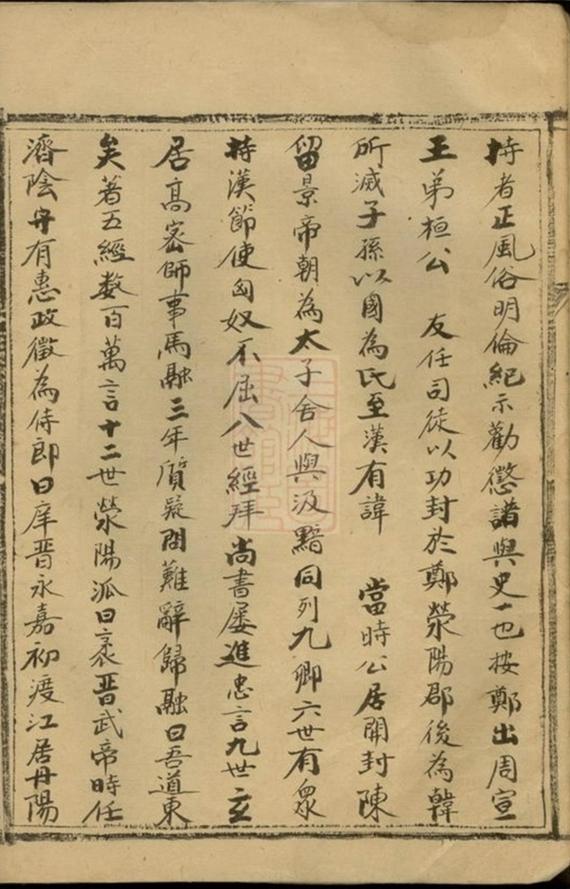 持者正風俗明倫紀示勸懲諸與史一也按鄭出周宣
王弟桓公 友任司徒以功封於鄭滎陽郡後為韓
所滅子孫以國為氏至漢有諱 當時公居開封陳
留景帝朝為太子舍人與汲黯同列九卿六世有眾
持漢節使匈奴不屈八世經拜尚書屢進忠言九世玄
居高密師事馬融三年質疑問難辭歸融曰吾道東
矣著五經数百萬言十二世滎陽派曰袤晋武帝時任
濟陰守有惠政徵為侍郎曰庠晋永嘉初渡江居丹陽